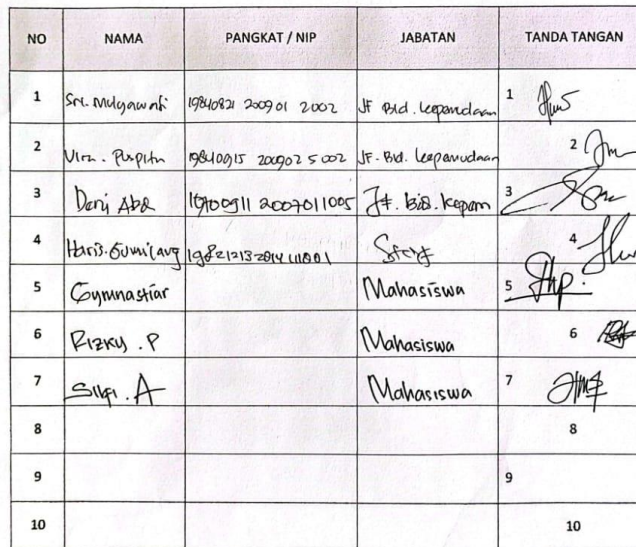 NO NAMA PANGKAT / NIP JABATAN TANDA TANGAN
1 Sri. Mulyawati 19840821 200901 2002 JF Bid. kepemudaan 1
2 Vira. Puspita 19840915 200902 5 002 JF. Bid. kepemudaan 2
3 Deni Abd 19700911 2007011005 Jf. Bid. kepem 3
4 Haris. Gumilang 4
5 Gymnastiar Mahasiswa 5
6 Rizky . P Mahasiswa 6
7 A Mahasiswa 7
8 8
9 9
10 10